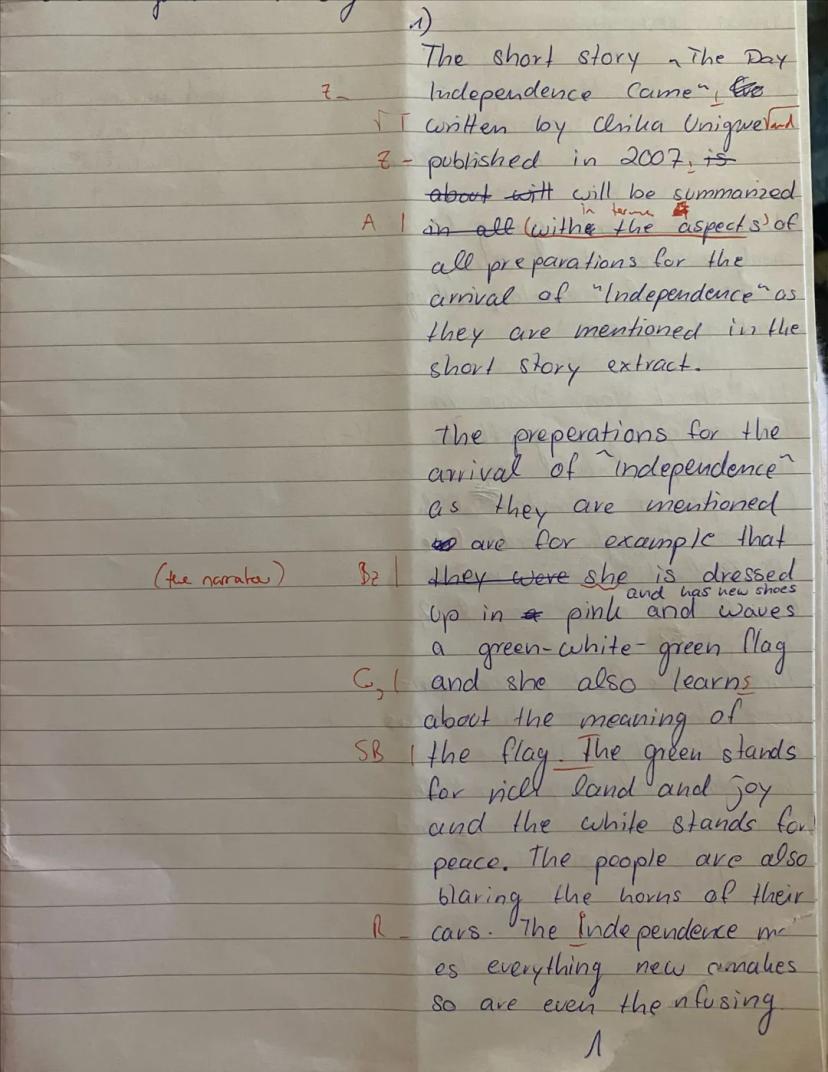 1)
The short story „The Day
Z- Independence Came",
√ written by Chika Unigwe √and
Z - published in 2007, is
about will will be summarized
in terms
A | in all (with the aspects) of
all preparations for the
arrival of "Independence" as
they are mentioned in the
short story extract.
The preperations for the
arrival of "Independence"
as they are mentioned
are for example that
(the narrator) Bz | they were she is dressed
and has new shoes
up in pink and waves
a green-white-green flag
G, | and she also learns
about the meaning of
SB | the flag. The green stands
for rich land and joy
and the white stands for
peace. The poople are also
blaring the horns of their
R - cars. The Independence
es everything new makes
so are even the nfusing
1